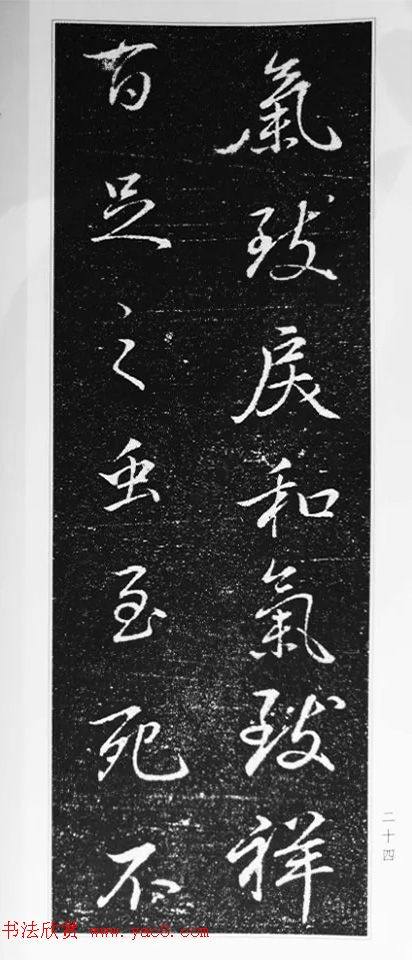 氣致戾和氣致祥
百足之虫至死不
二十四
书法欣赏 www.yac8.com